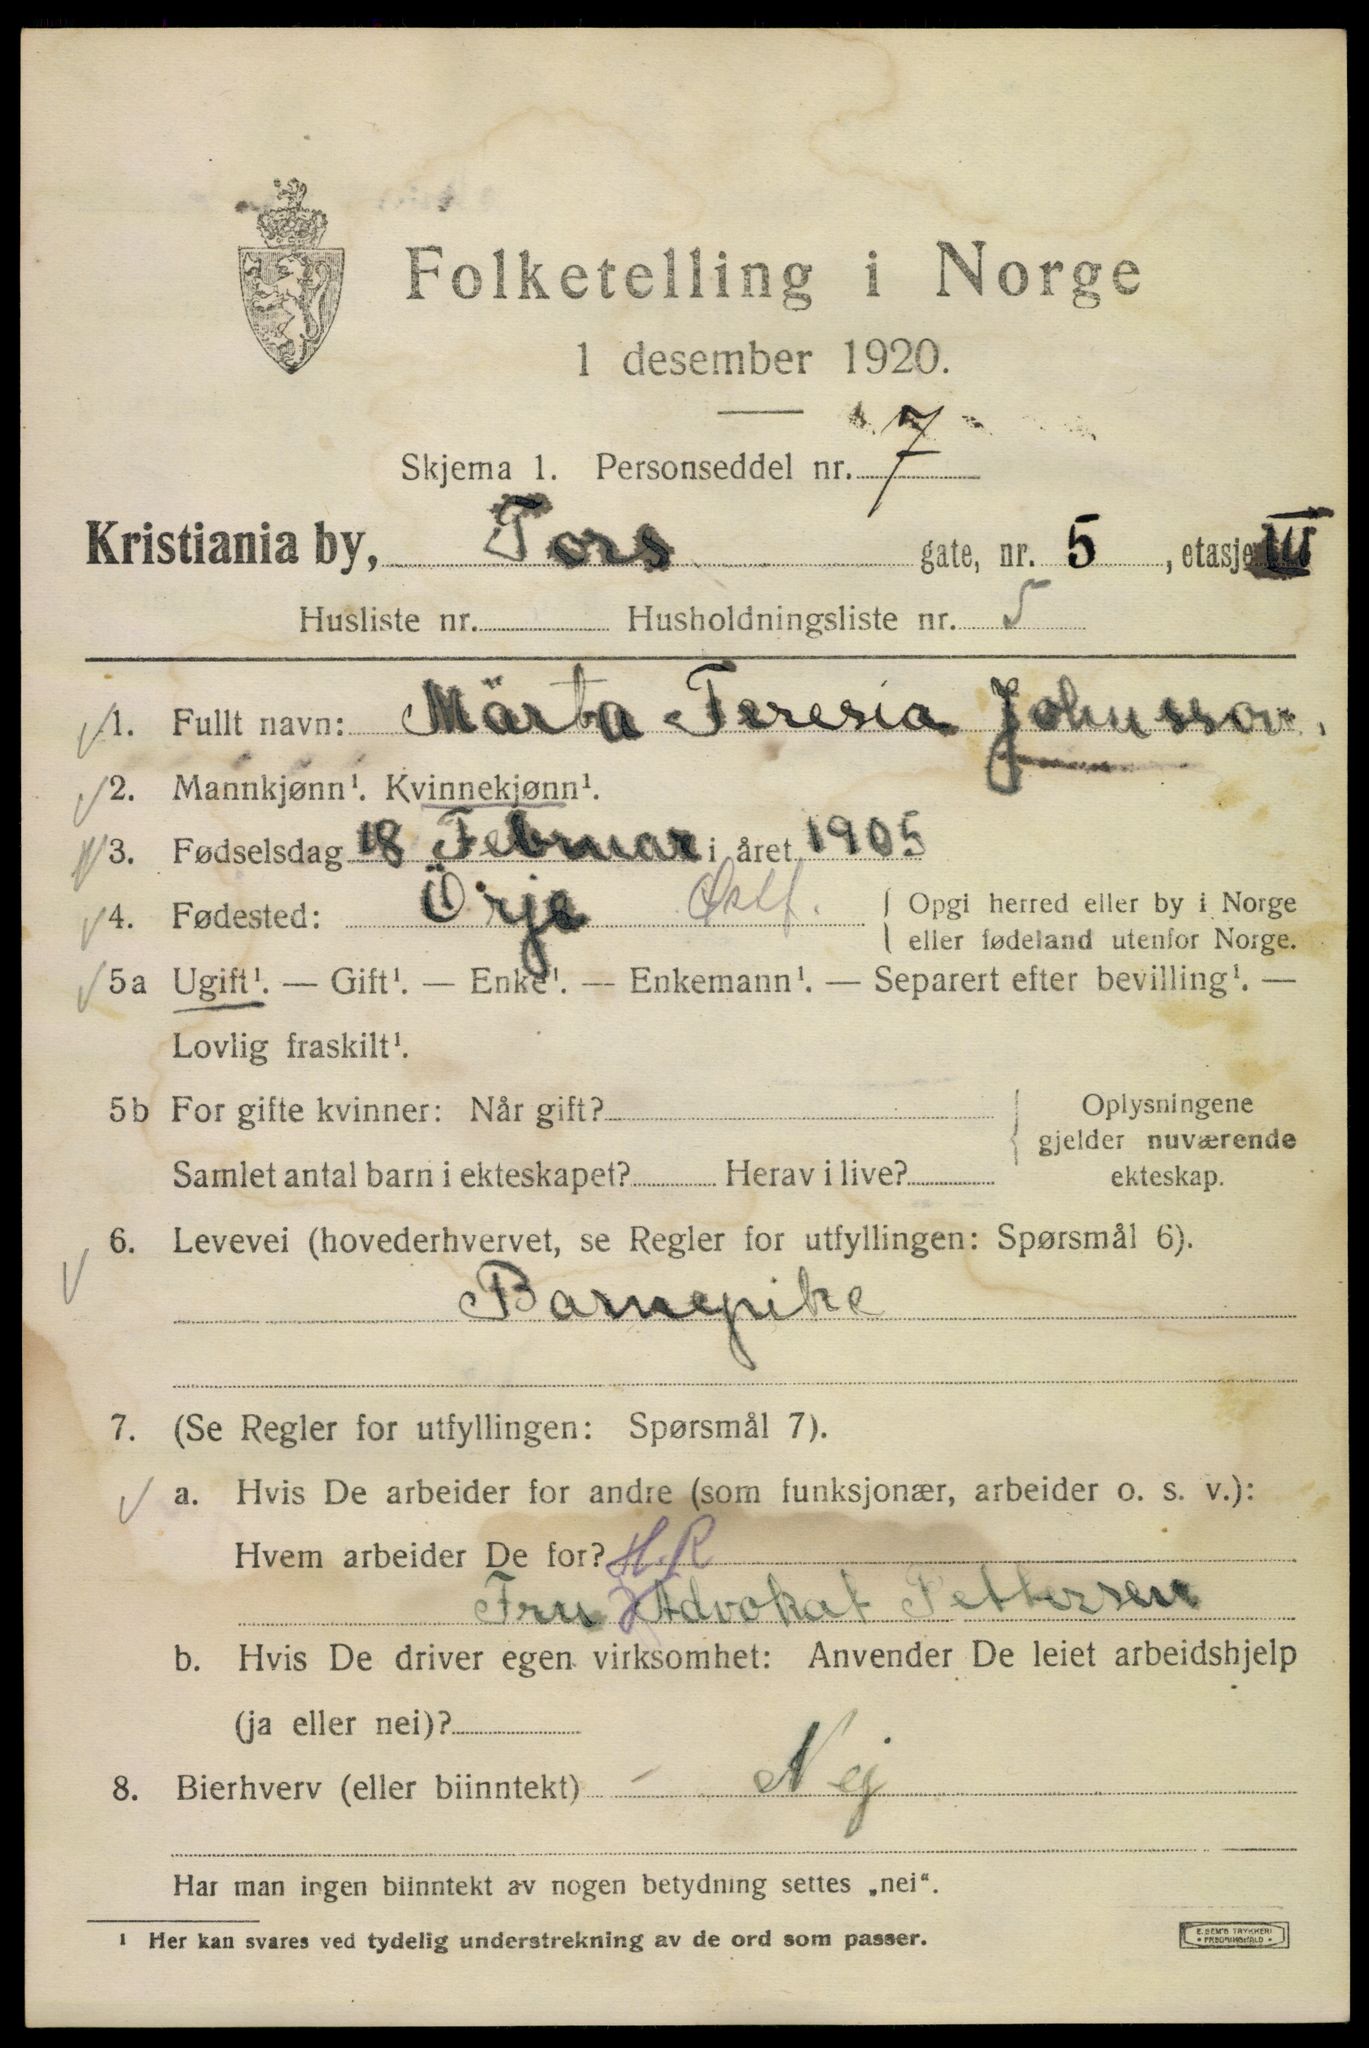 Folketelling i Norge
1 desember 1920.
Skjema 1. Personseddel nr. 7
Kristiania by, Tors gate, nr. 5, etasje III
Husliste nr. Husholdningsliste nr. 5
1. Fullt navn: Märta Teresia Johnsson.
2. Mannkjønn¹. Kvinnekjønn¹.
3. Fødselsdag 18 Februar i året 1905
4. Fødested: Örje Østf. { Opgi herred eller by i Norge
eller fødeland utenfor Norge.
5a Ugift¹. — Gift¹. — Enke¹. — Enkemann¹. — Separert efter bevilling¹. —
Lovlig fraskilt¹.
5b For gifte kvinner: Når gift? { Oplysningene
gjelder nuværende
Samlet antal barn i ekteskapet? Herav i live? ekteskap.
6. Levevei (hovederhvervet, se Regler for utfyllingen: Spørsmål 6).
Barnepike
7. (Se Regler for utfyllingen: Spørsmål 7).
a. Hvis De arbeider for andre (som funksjonær, arbeider o. s. v.):
Hvem arbeider De for? H.R
Fru Advokat Pettersen
b. Hvis De driver egen virksomhet: Anvender De leiet arbeidshjelp
(ja eller nei)?
8. Bierhverv (eller biinntekt) - Nej
Har man ingen biinntekt av nogen betydning settes „nei“.
¹ Her kan svares ved tydelig understrekning av de ord som passer.
E. SEM'S TRYKKERI
FREDRIKSHALD